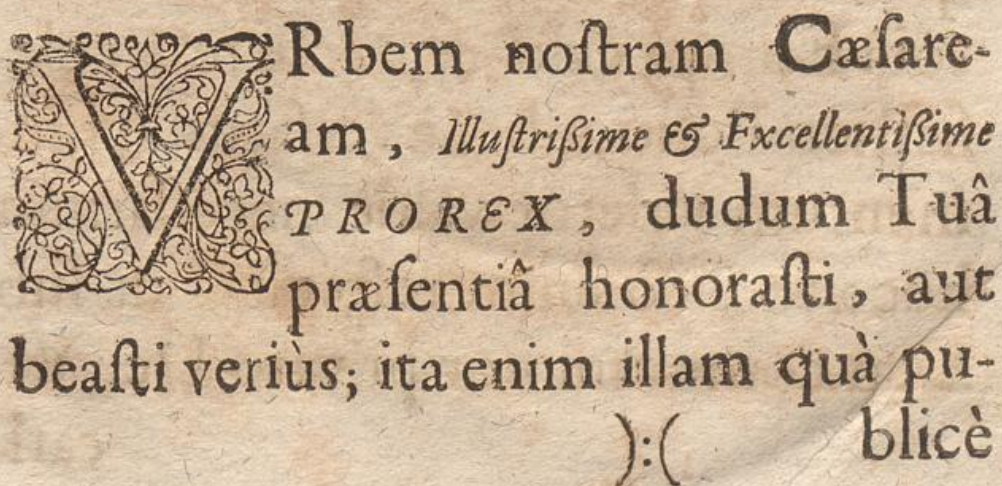 VRbem noſtram Cæſare-
am, Illuſtriſsime & Excellentiſsime
PROREX, dudum Tuâ
præſentiâ honoraſti, aut
beaſti veriùs; ita enim illam quà pu-
):( blicè